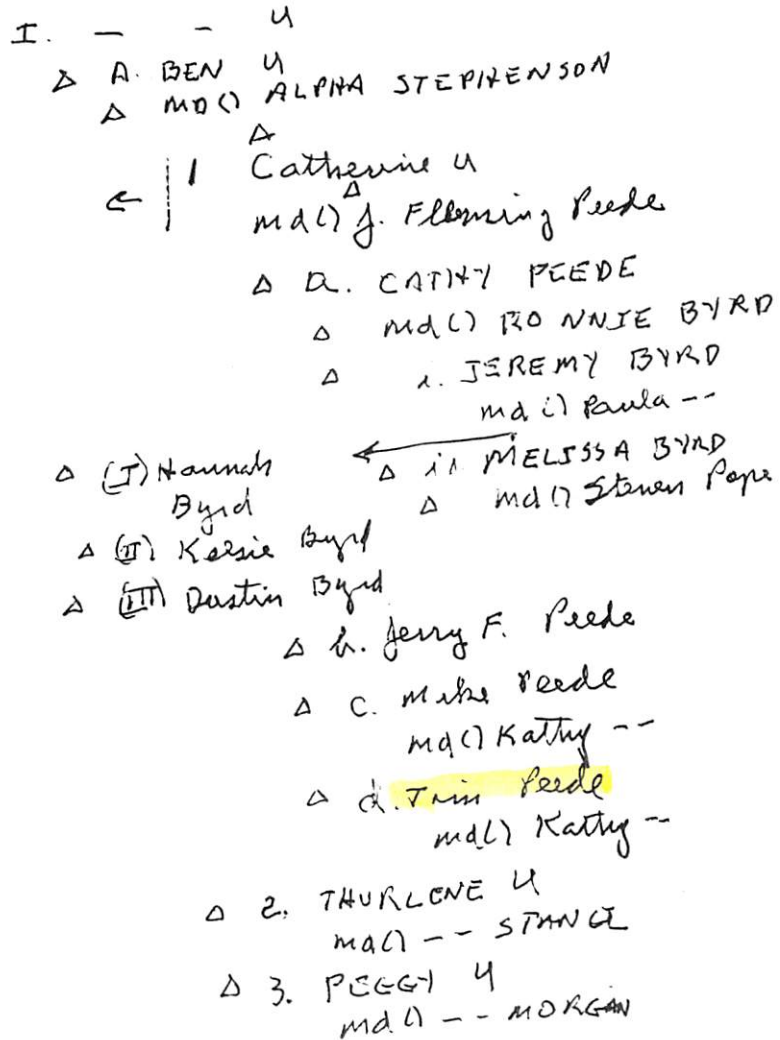 I. — — U
Δ A. BEN U
Δ MD () ALPHA STEPHENSON
Δ
1 Catherine U
Δ
md () J. Flemming Peede
Δ a. CATHY PEEDE
Δ md () RONNIE BYRD
Δ i. JEREMY BYRD
md () Paula --
Δ ii MELISSA BYRD
Δ md () Steven Pope
Δ (I) Hannah
Byrd
Δ (II) Kelsie Byrd
Δ (III) Dustin Byrd
Δ b. Jerry F. Peede
Δ c. Mike Peede
md () Kathy --
Δ d. Tim Peede
md () Kathy --
Δ 2. THURLENE U
md () -- STANCIL
Δ 3. PEGGY U
md () -- MORGAN